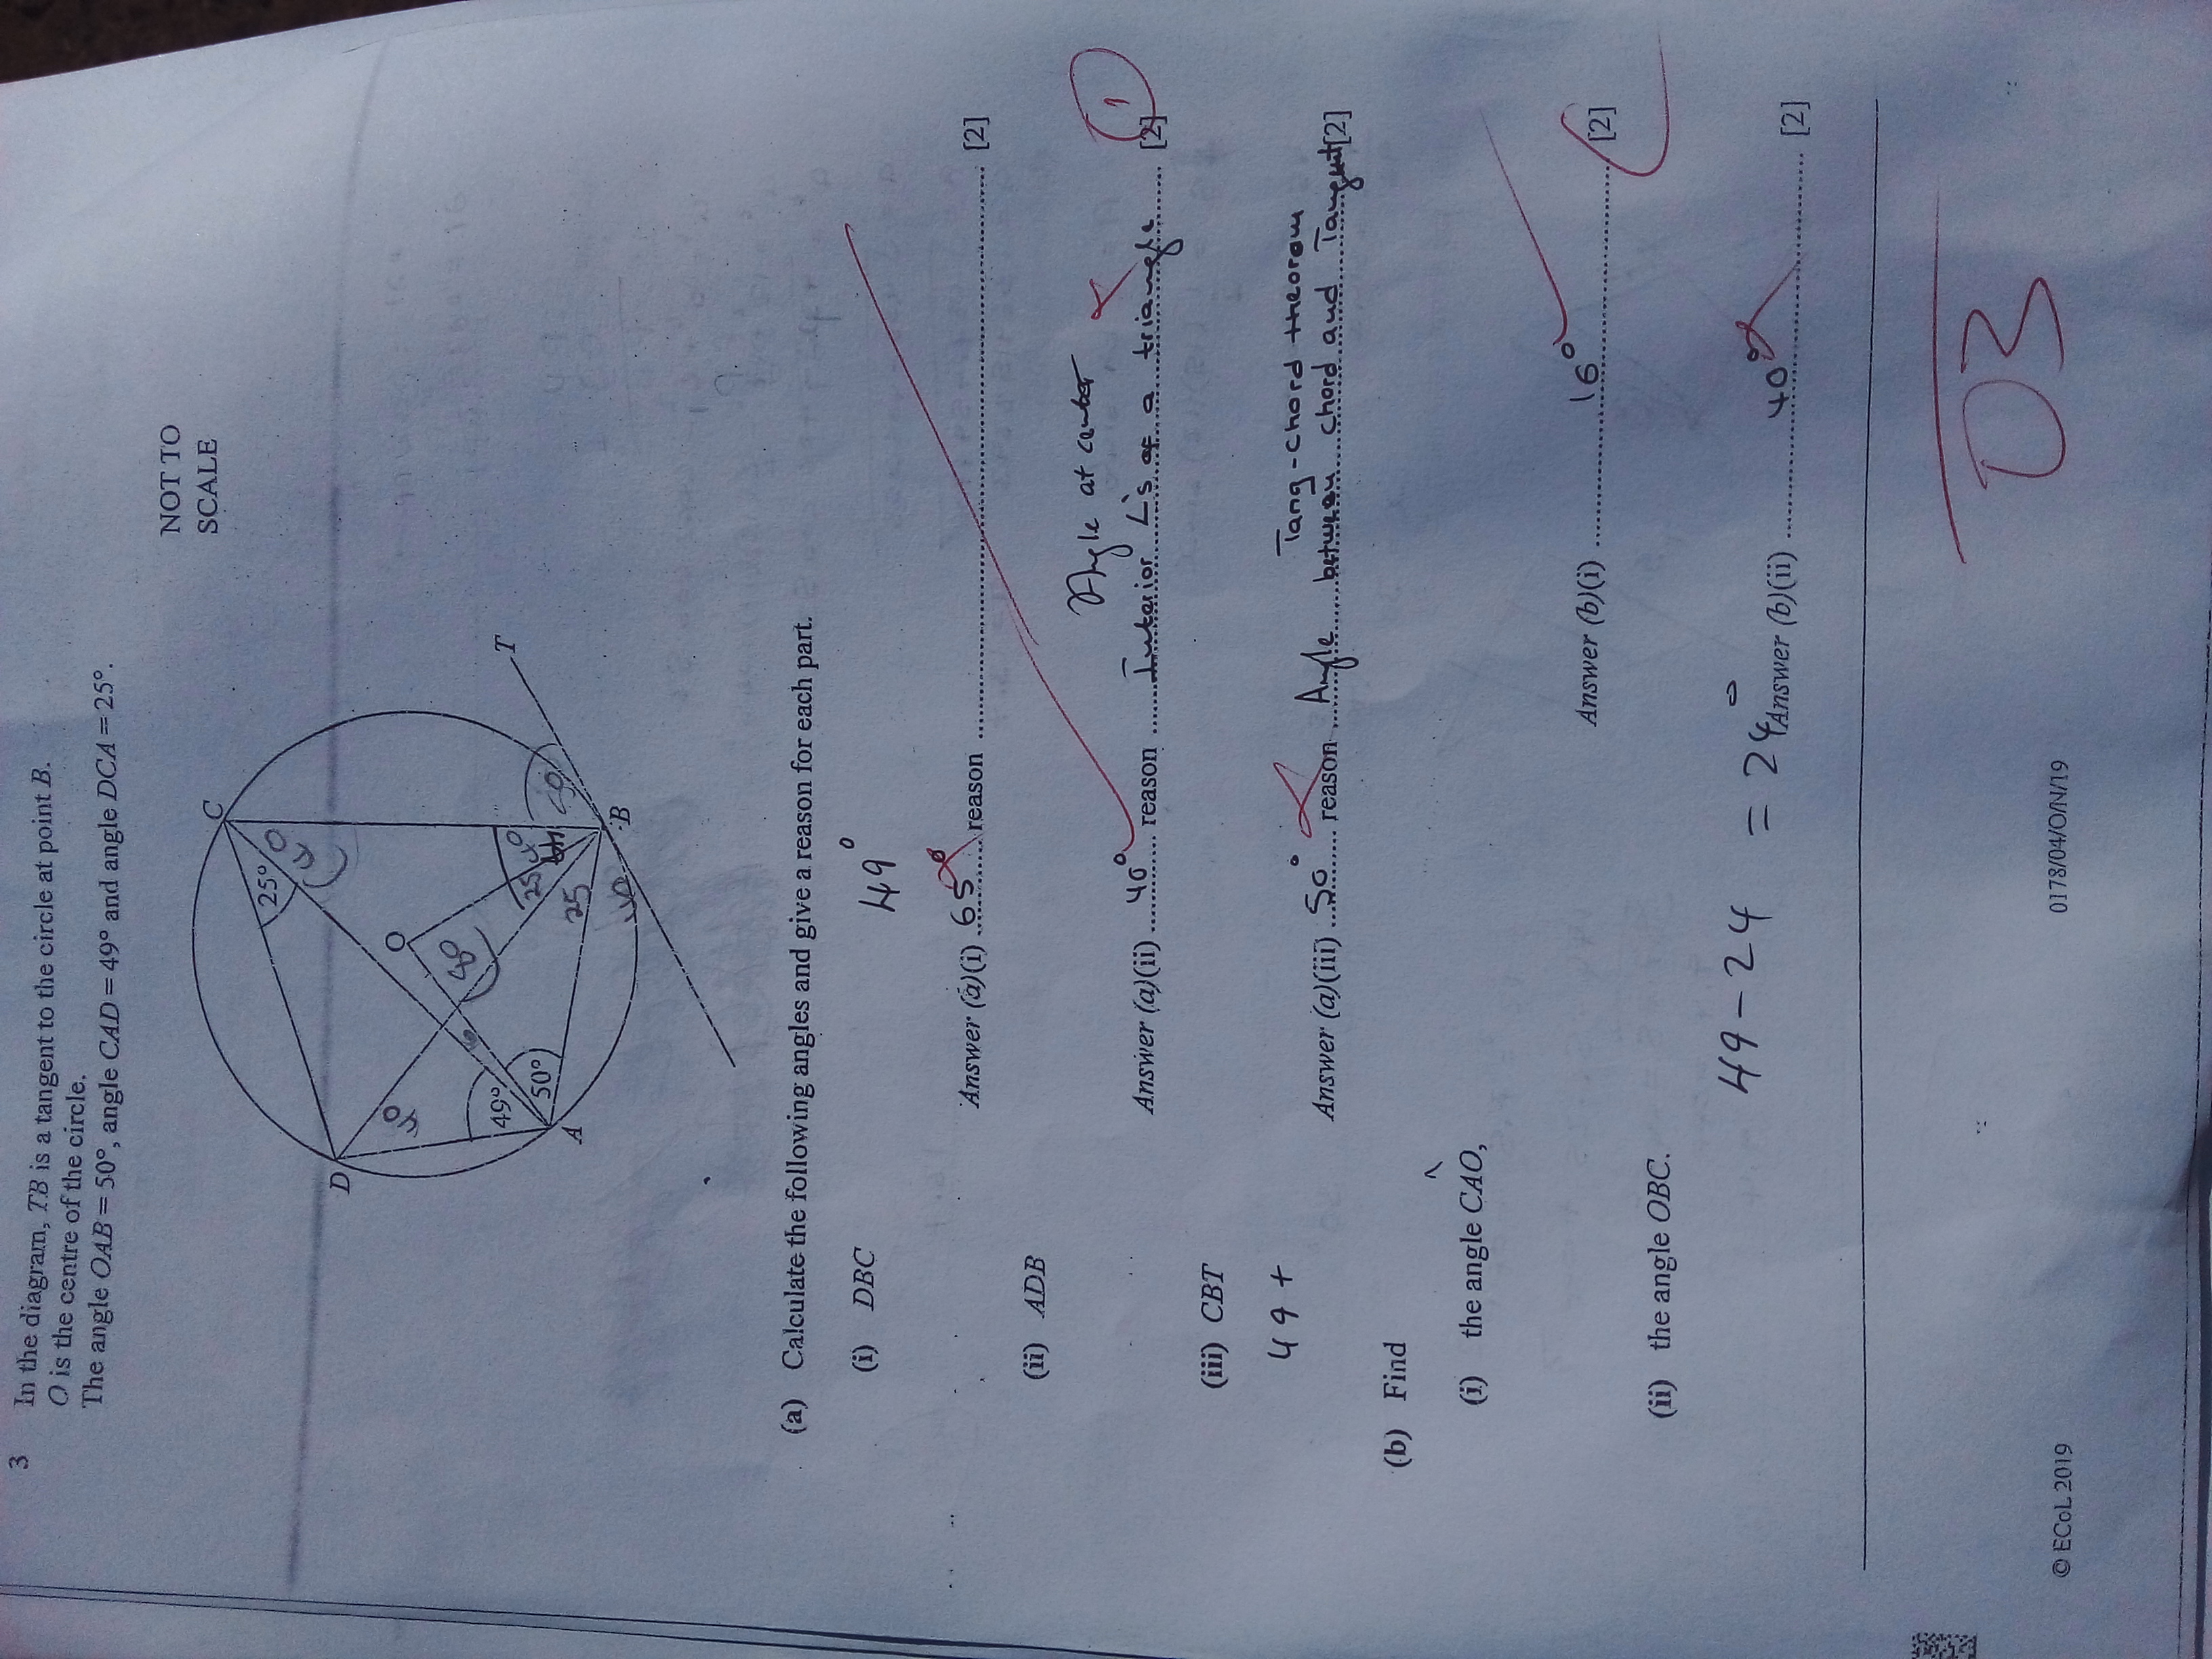 3 In the diagram, TB is a tangent to the circle at point B.
O is the centre of the circle.
The angle OAB = 50°, angle CAD = 49° and angle DCA = 25°.
NOT TO
SCALE
C
25°
40
D
40
O
80
49°
50°
A
25
25
40
50
T
40
B
(a) Calculate the following angles and give a reason for each part.
(i) DBC
49°
Answer (a)(i) 65° reason [2]
(ii) ADB
Angle at center
1
Answer (a)(ii) 40° reason Interior L's of a triangle [2]
(iii) CBT
49 +
Tang-chord theorem
Answer (a)(iii) 50° reason Angle between chord and Tangent [2]
(b) Find
(i) the angle CAO,
Answer (b)(i) 16° [2]
(ii) the angle OBC.
49 - 24 = 24°
Answer (b)(ii) 40° [2]
03
© ECoL 2019 0178/04/O/N/19